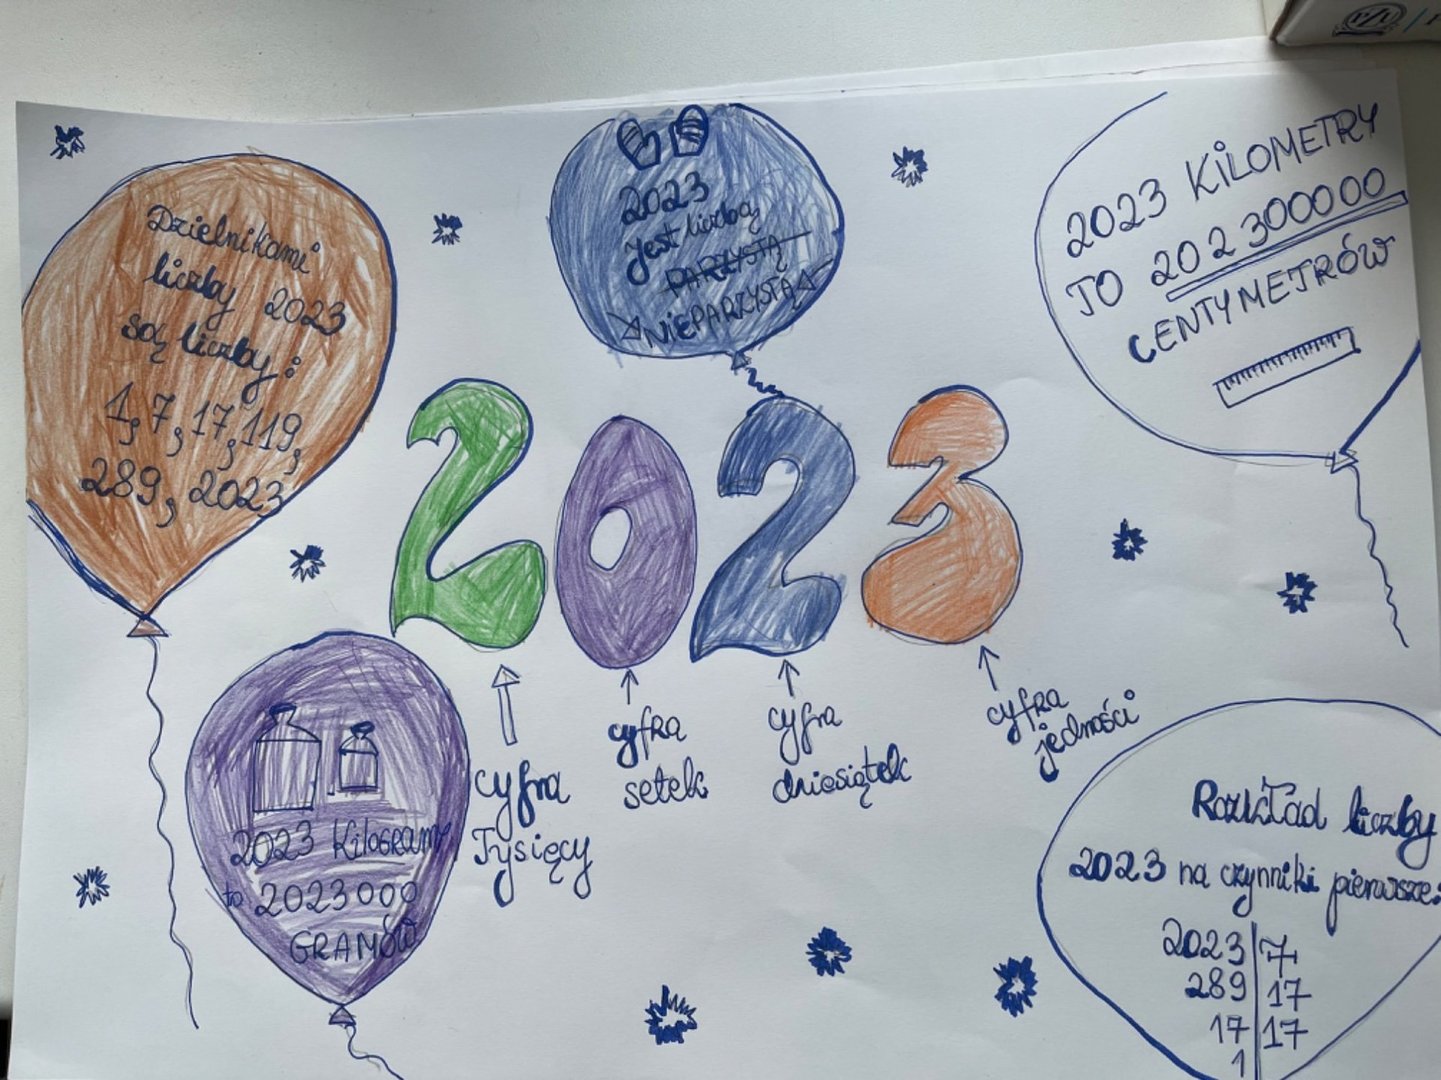 Dzielnikami
liczby 2023
są liczby:
1, 7, 17, 119,
289, 2023
2023
jest liczbą
PARZYSTĄ
NIEPARZYSTĄ
2023 KILOMETRY
TO 202300000
CENTYMETRÓW
2023
cyfra
Tysięcy
cyfra
setek
cyfra
dziesiątek
cyfra
jedności
2023 KILOGRAMY
to 2023000
GRAMÓW
Rozkład liczby
2023 na czynniki pierwsze:
2023 | 7
289 | 17
17 | 17
1